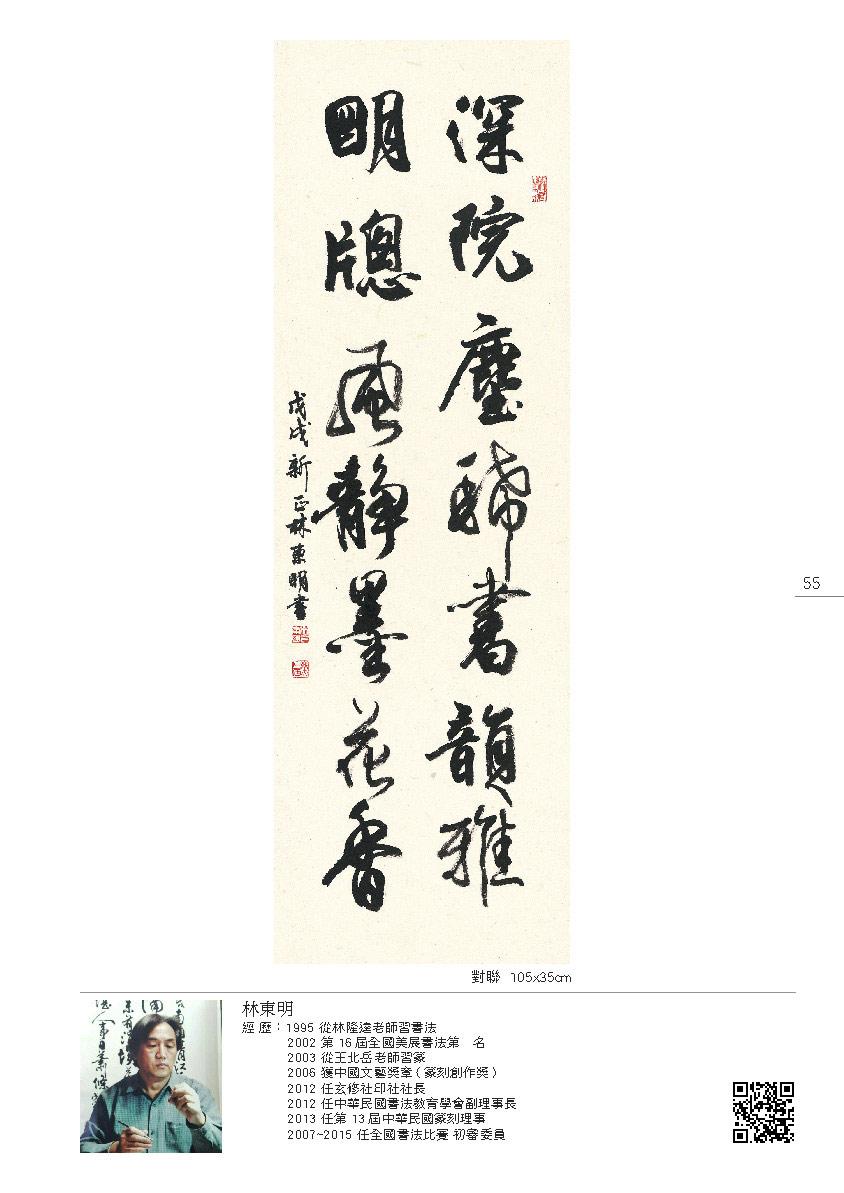 深院塵稀書韻雅
明牕風靜墨花香
戊戌新正林東明書
55
對聯 105x35cm
林東明
經 歷：1995 從林隆達老師習書法
2002 第 16 屆全國美展書法第 名
2003 從王北岳老師習篆
2006 獲中國文藝獎章 ( 篆刻創作獎 )
2012 任玄修社印社社長
2012 任中華民國書法教育學會副理事長
2013 任第 13 屆中華民國篆刻理事
2007~2015 任全國書法比賽 初審委員